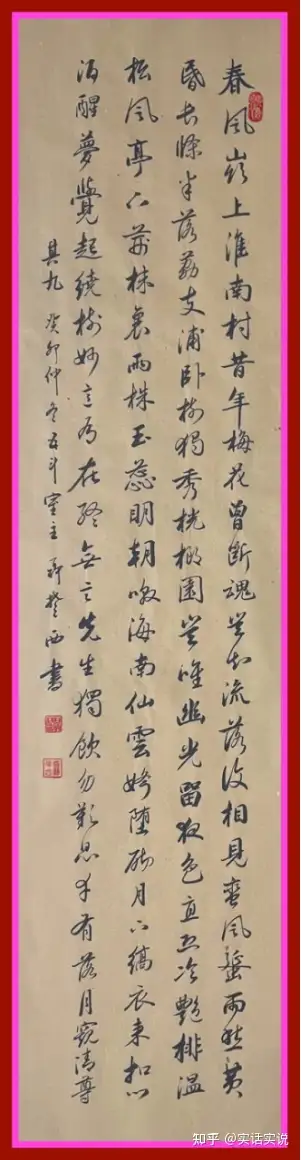 春风嶺上淮南村昔年梅花曾断魂豈知流落復相見蛮风蜑雨愁黄
昏长條半落荔支浦卧樹獨秀桄榔園豈唯幽光留夜色直恐冷艷排温
松风亭下荆棘裏兩株玉蕊明朝暾海南仙雲嬌堕砌月下縞衣来扣门
酒醒夢覺起繞樹妙意有在終無言先生獨飲勿歎息幸有落月窺清尊
其九 癸卯仲冬五斗室主 西書
知乎 @实话实说